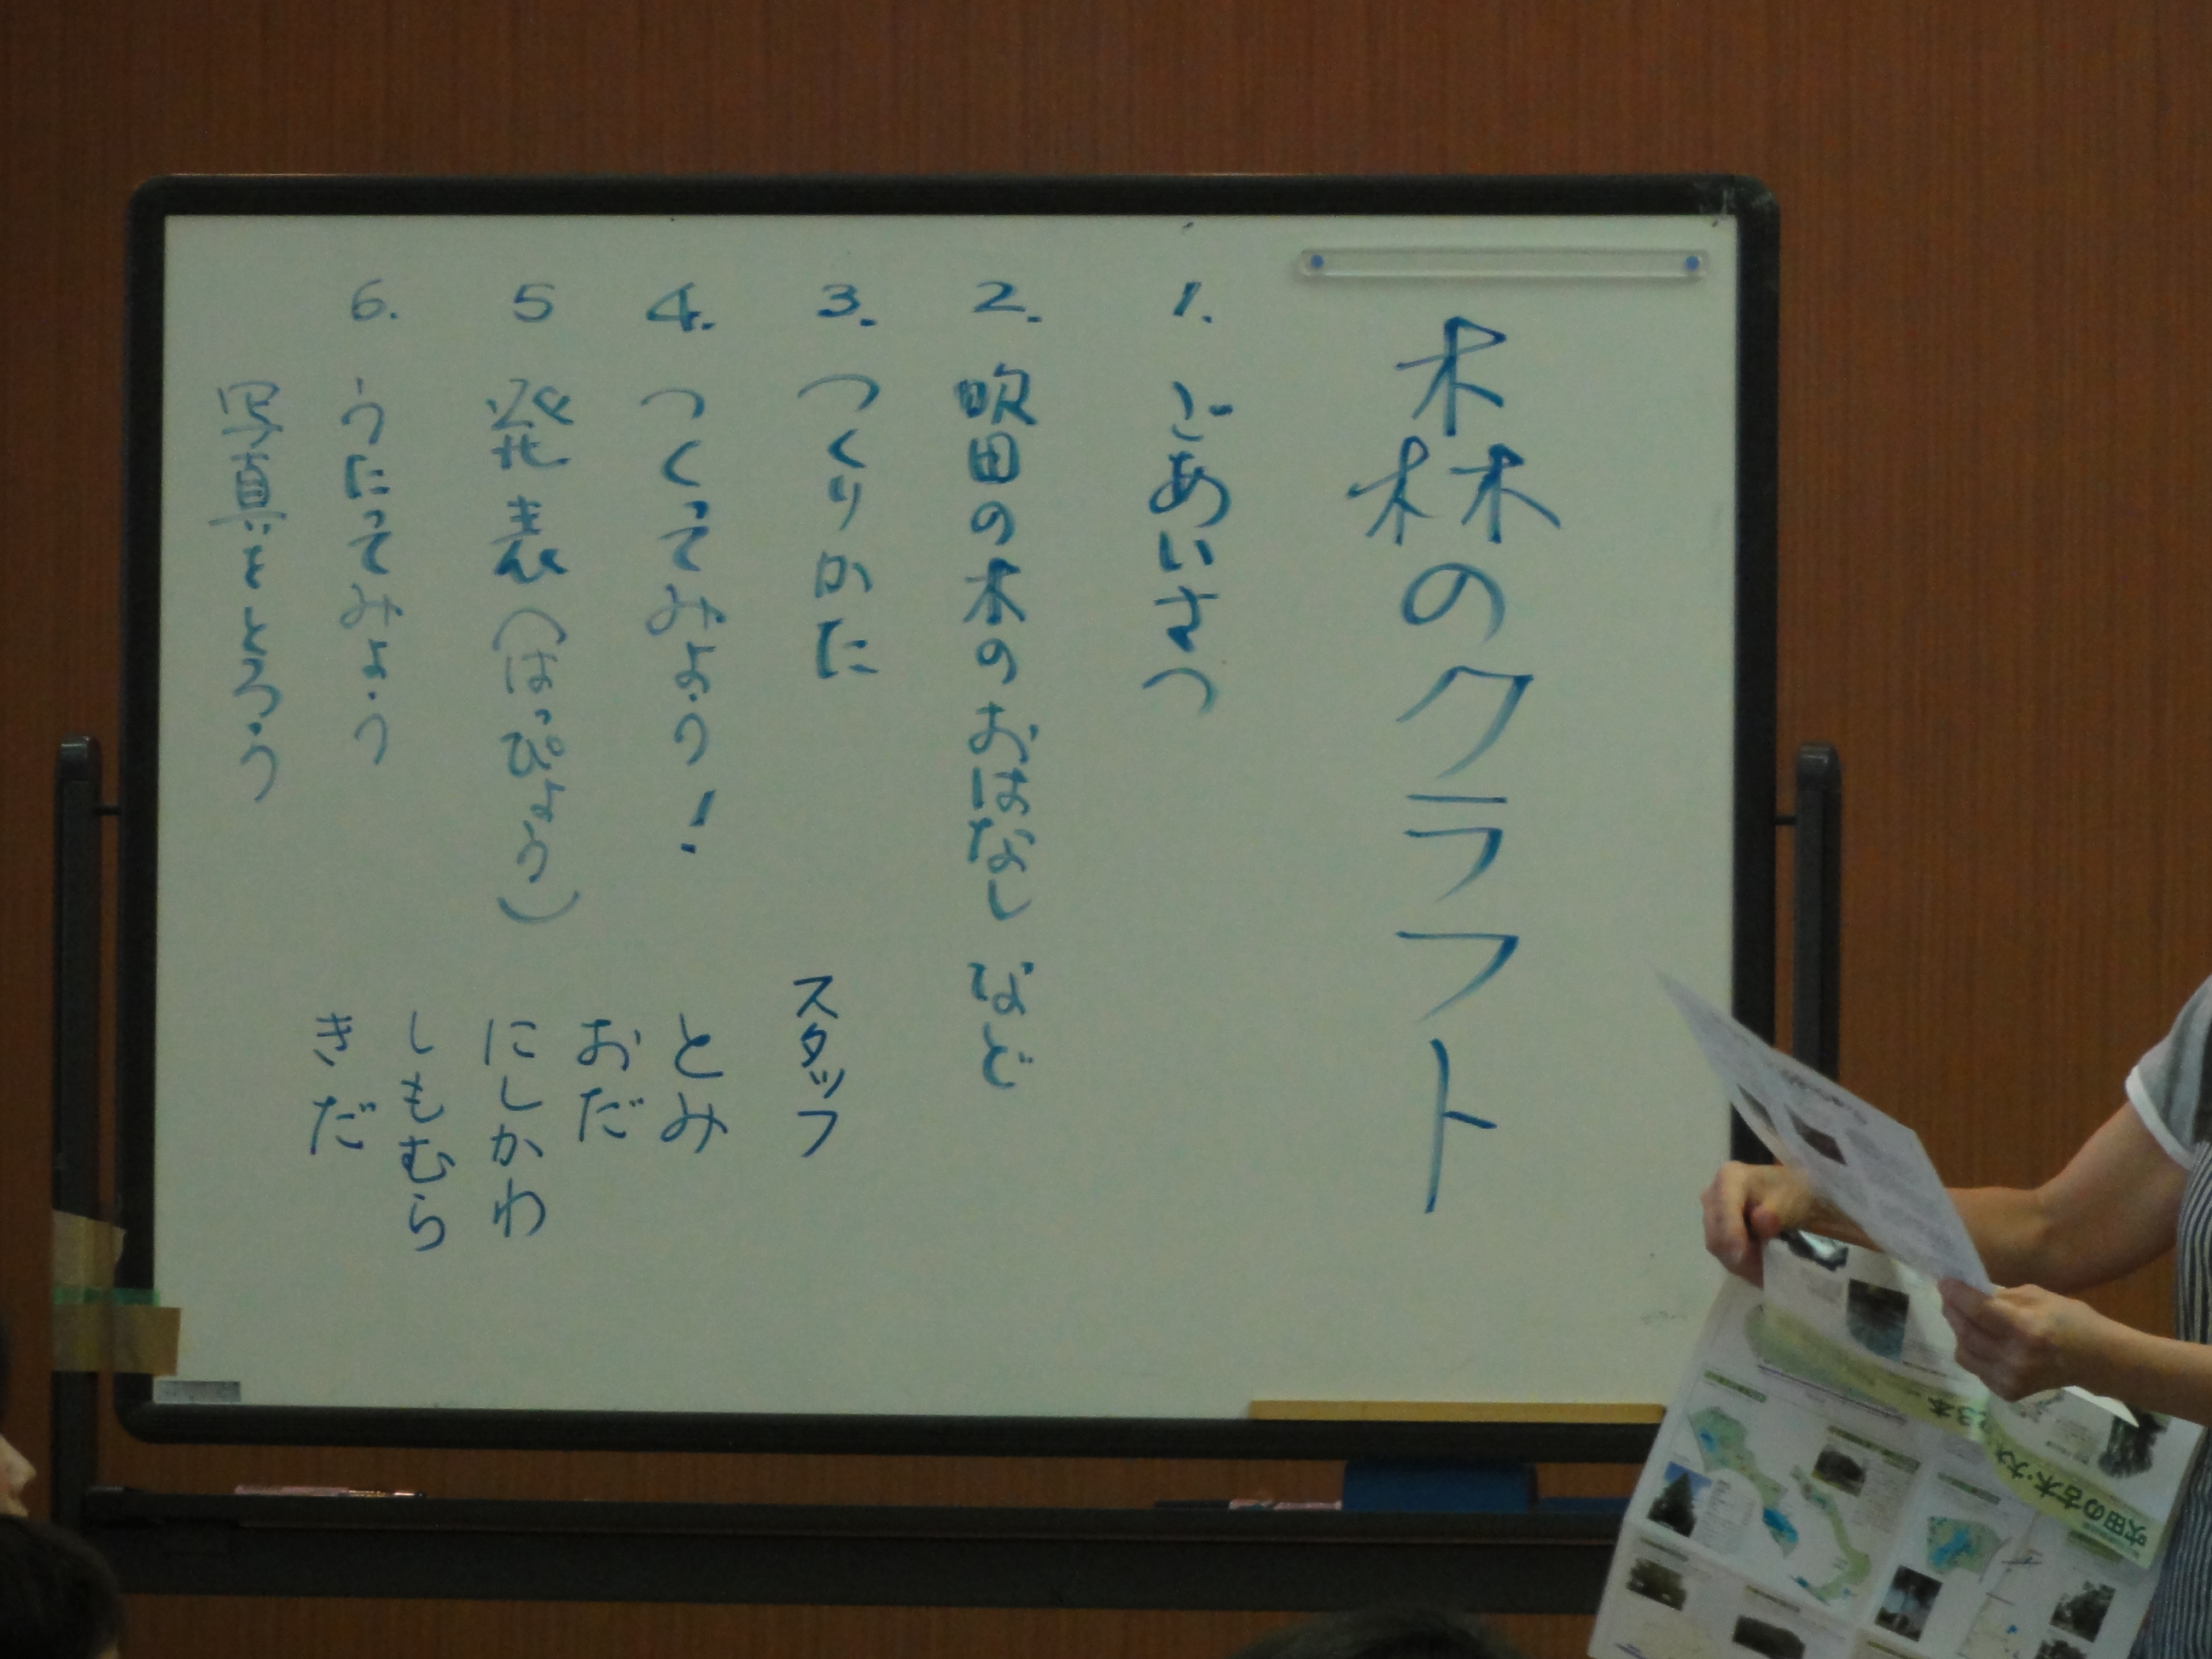 森のクラフト
1. ごあいさつ
2. 吹田の木のおはなし など
3. つくりかた
4. つくってみよう!
5 発表(はっぴょう)
6. うにってみよう
写真をとろう
スタッフ
とみ
おだ
にしかわ
しもむら
きだ
吹田の古木・大